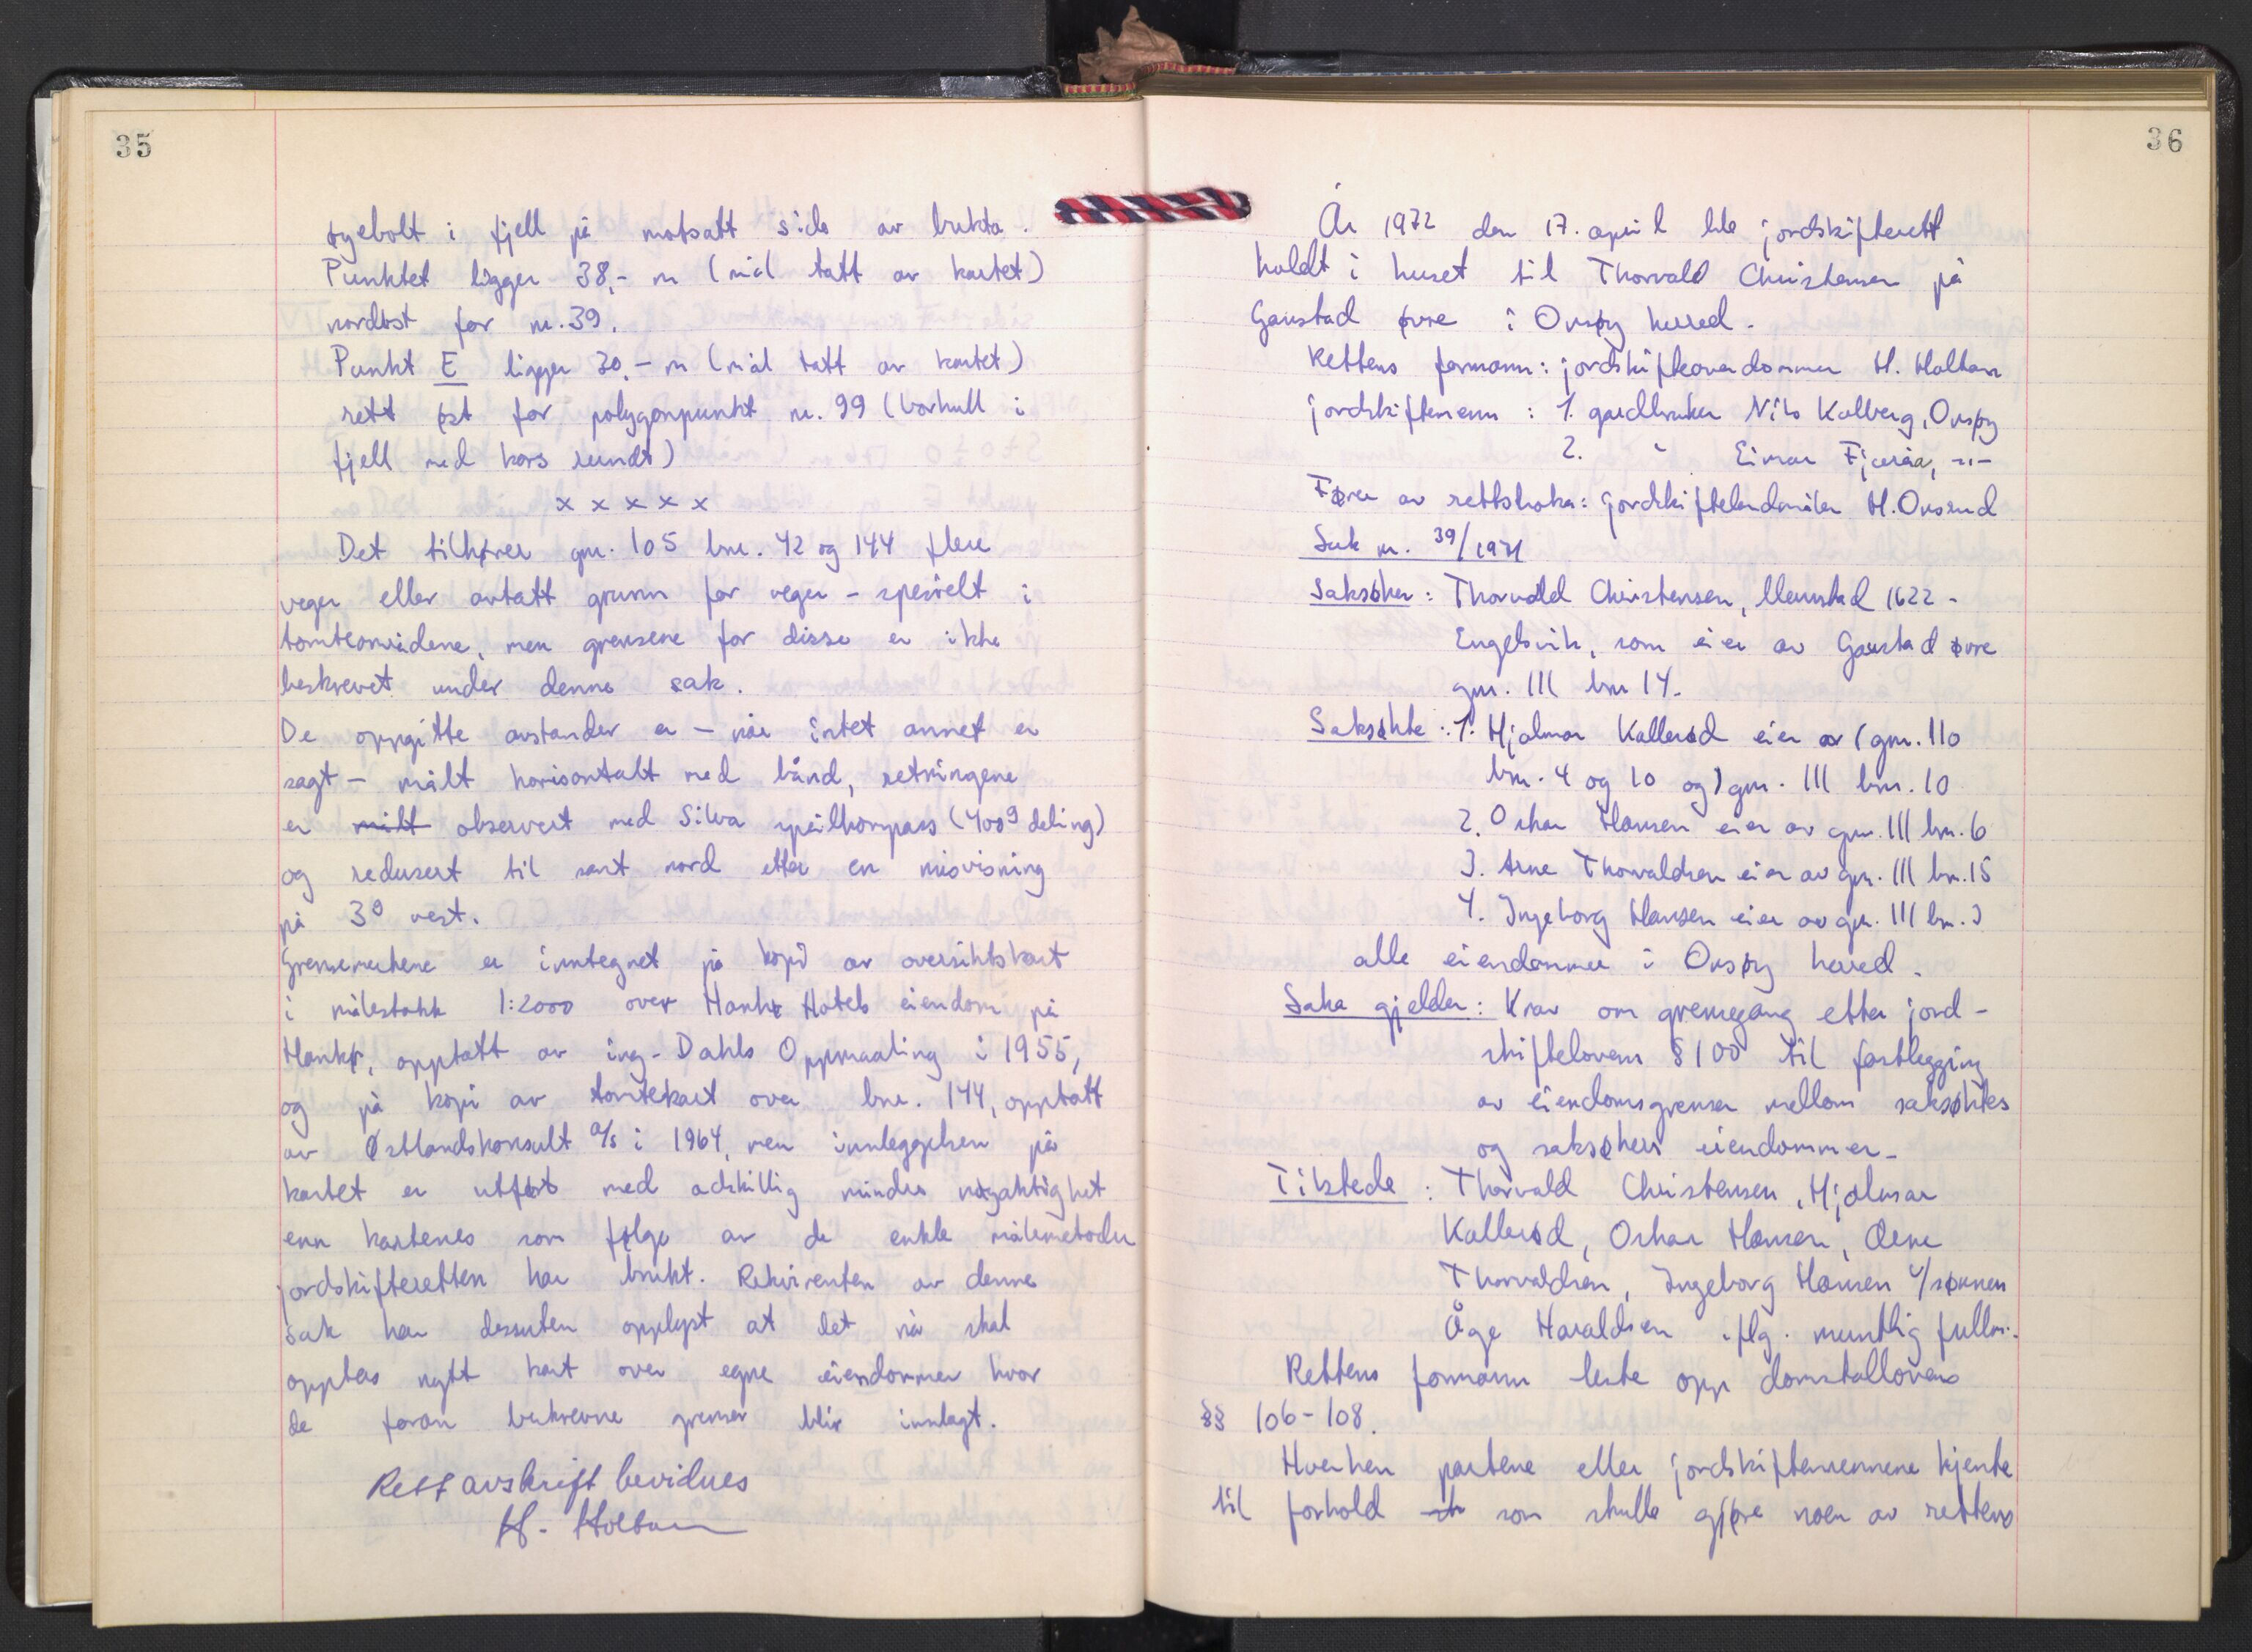 35
øyebolt i fjell på motsatt side av bukta.
Punktet ligger 38,- m (mål tatt av kartet)
nordøst for nr. 39.
Punkt E ligger 30,- m (mål tatt av kartet)
rett øst for polygonpunkt nr. 99 (borhull i
fjell med kors rundt)
x x x x x
Det tilhører gnr. 105 bnr. 42 og 144 flere
veger eller avtatt grunn for veger - spesielt i
tomteområdene, men grensene for disse er ikke
beskrevet under denne sak.
De oppgitte avstander er - når intet annet er
sagt - målt horisontalt med bånd, retningene
er målt observert med Silva speilkompass (400g deling)
og redusert til sant nord etter en misvisning
på 3g vest.
Grensemerkene er inntegnet på kopi av oversiktskart
i målestokk 1:2000 over Hankø Hotels eiendom på
Hankø, opptatt av ing. Dahls Oppmaaling i 1955,
og på kopi av tomtekart over bnr. 144, opptatt
av Østlandskonsult a/s i 1964, men innleggelsen på
kartet er utført med adskillig mindre nøyaktighet
enn kartenes som følge av de enkle målemetoder
jordskifteretten har brukt. Rekvirenten av denne
sak har dessuten opplyst at det nå skal
opptas nytt kart over egne eiendommer hvor
de foran beskrevne grenser blir innlagt.
Rett avskrift bevidnes
H. Holtan
36
År 1972 den 17. april ble jordskifterett
holdt i huset til Thorvald Christensen på
Gaustad øvre i Onsøy herred.
Rettens formann: jordskifteoverdommer H. Holtan
jordskiftemenn: 1. gardbruker Nils Kalberg, Onsøy
2. " Einar Fjæraa, -"-
Fører av rettsboka: jordskiftelandmåler H. Onsrud
Sak nr. 39/1971
Saksøker: Thorvald Christensen, Maustad 1622 -
Engelsvik, som eier av Gaustad øvre
gnr. 111 bnr 14.
Saksøkte: 1. Hjalmar Kallerød eier av (gnr. 110
bnr. 4 og 10 og) gnr. 111 bnr. 10
2. Oskar Hansen eier av gnr. 111 bnr. 6
3. Arne Thorvaldsen eier av gnr. 111 bnr. 15
4. Ingeborg Hansen eier av gnr. 111 bnr. 3
alle eiendommer i Onsøy herred.
Saka gjelder: Krav om grensegang etter jord-
skiftelovens § 100 til fastlegging
av eiendomsgrenser mellom saksøktes
og saksøkers eiendommer.
Tilstede: Thorvald Christensen, Hjalmar
Kallerød, Oskar Hansen, Arne
Thorvaldsen, Ingeborg Hansen v/sønnen
Åge Haraldsen iflg. muntlig fullm.
Rettens formann leste opp domstollovens
§§ 106-108.
Hverken partene eller jordskiftemennene kjente
til forhold som skulle gjøre noen av rettens